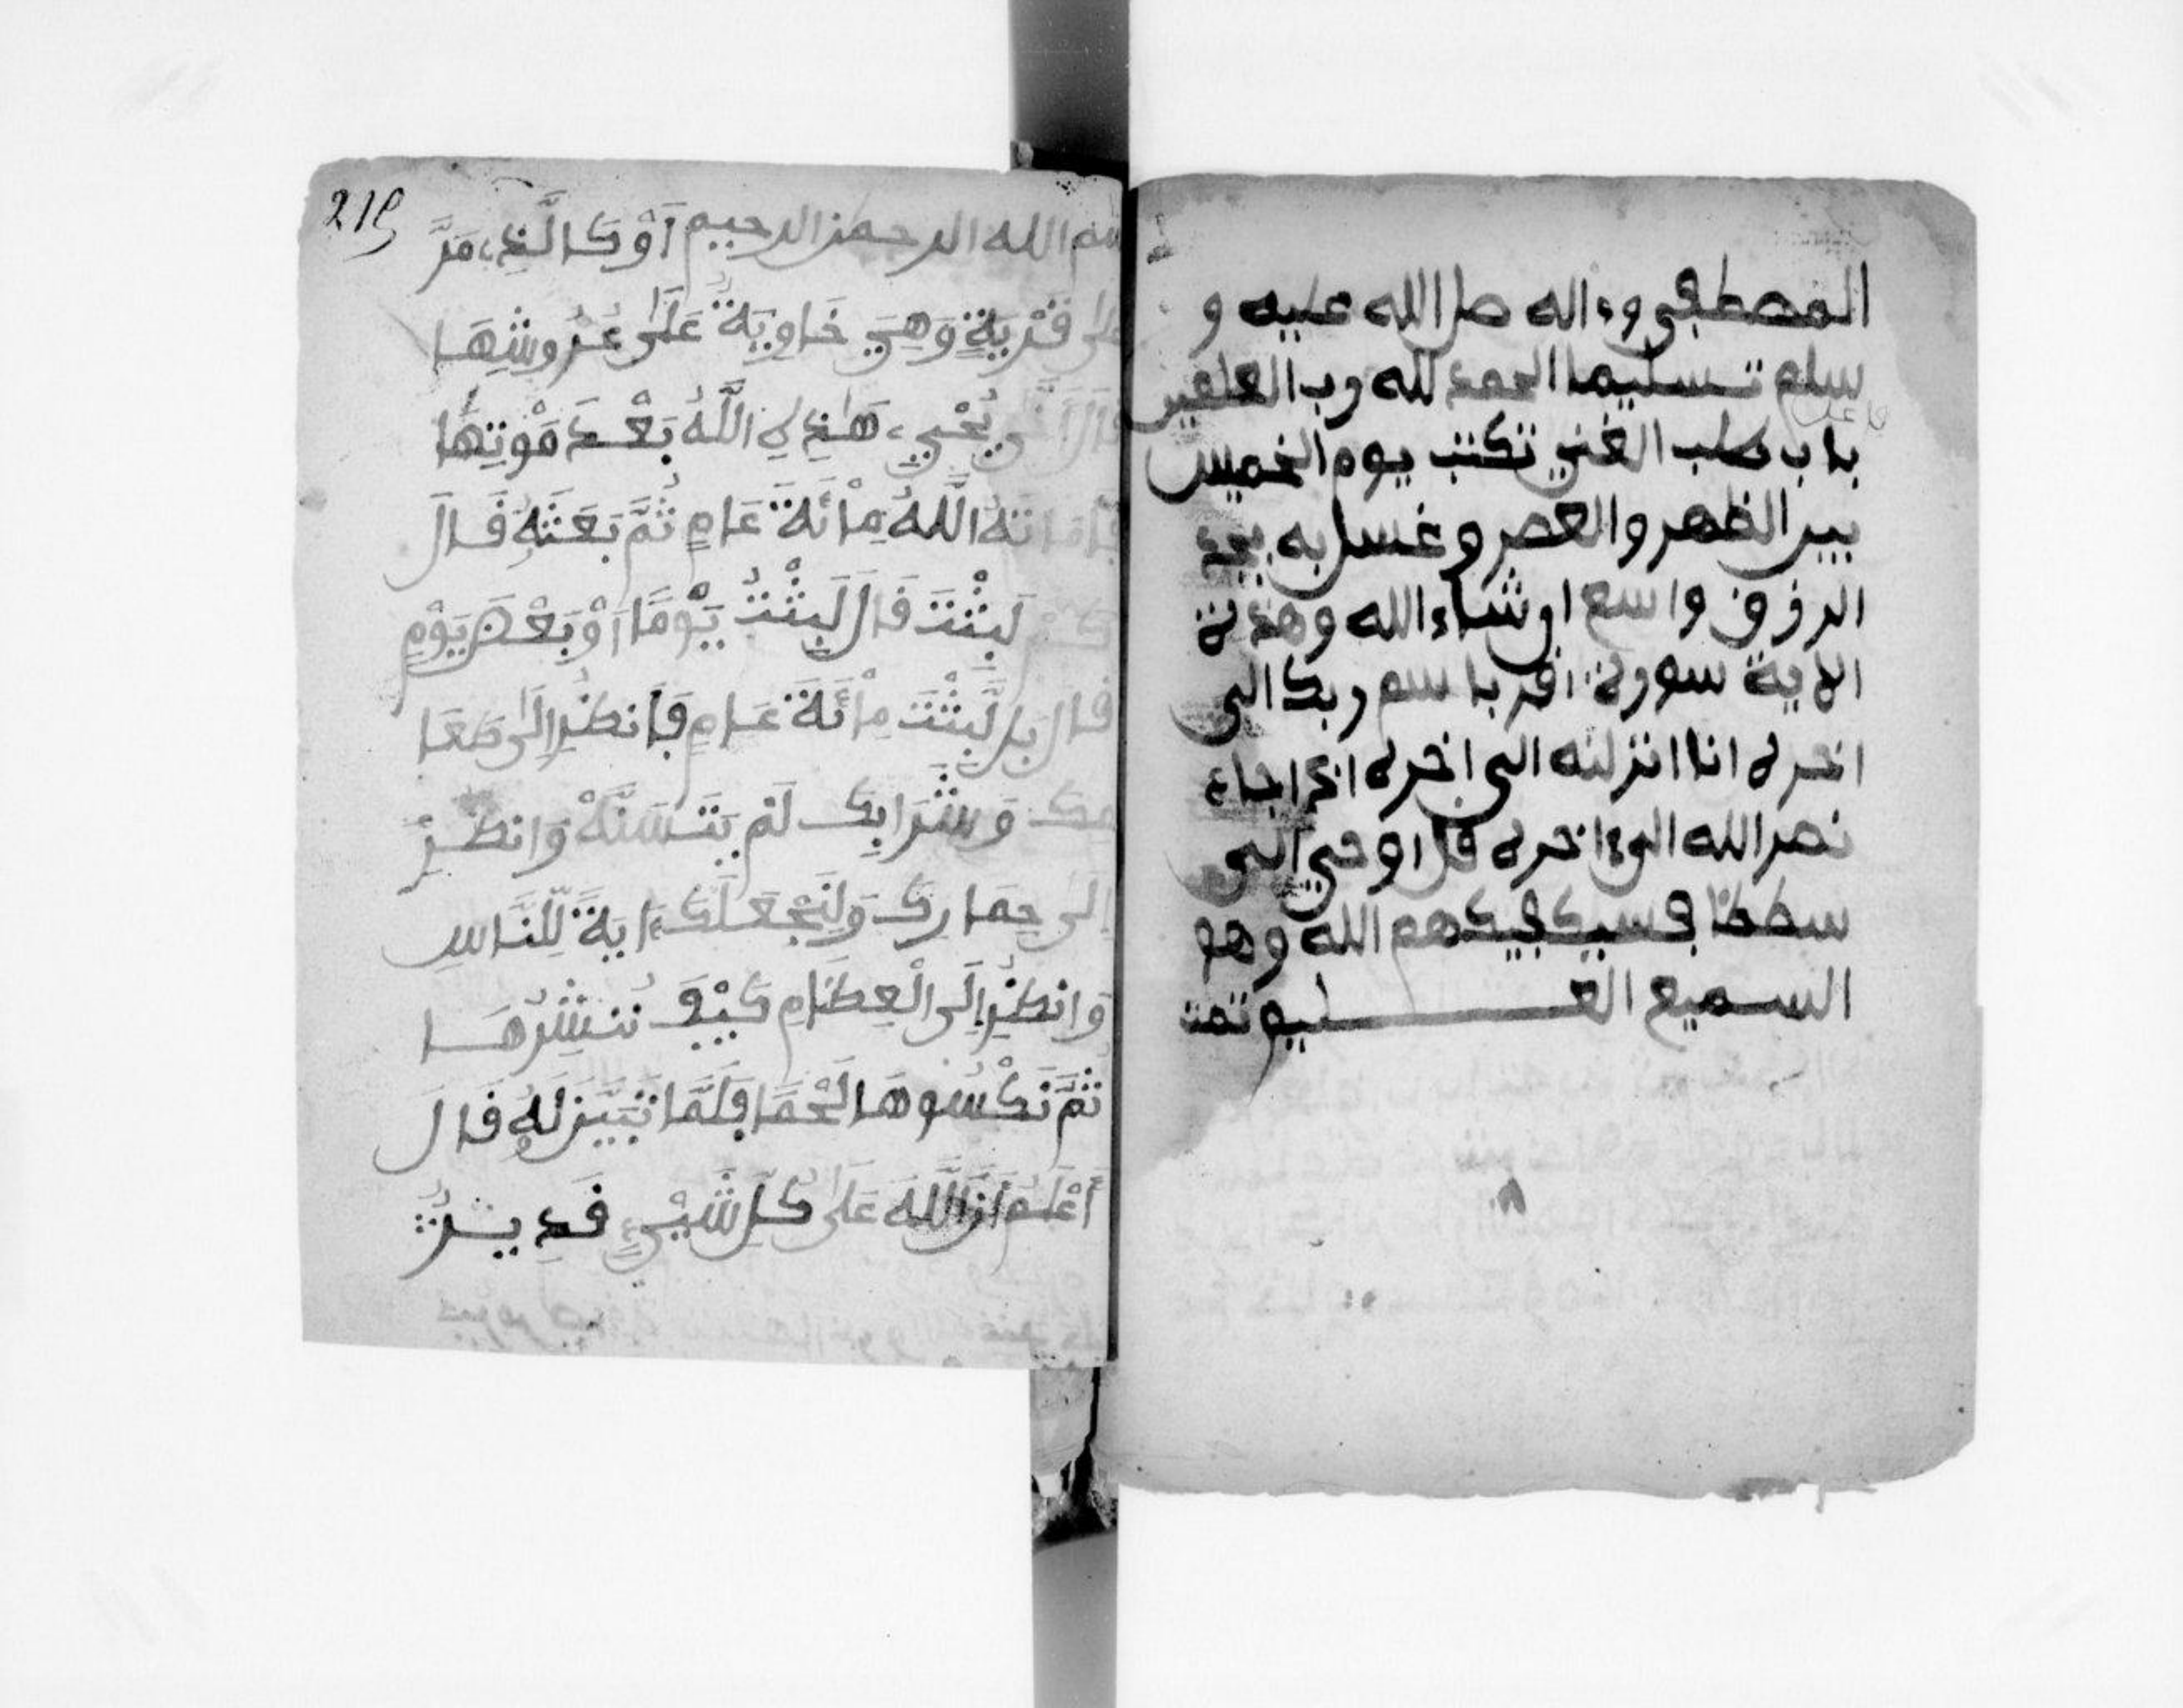 المصطفى وءاله صل الله عليه و
سلم تسليما الحمد لله رب العلمين
باب طلب الغني تكتب يوم الخميس
بين الظهر والعصر وغسل به يجد
الرزق واسع ان شاء الله وهذه
الاية سورة اقر باسم ربك الى
اخره انا انزلنه الى اخره اذا جاء
نصر الله الى ءاخره قل اوحي الى
شططا فسيكفيكهم الله وهو
السميع العليم تمت
219
بسم الله الرحمن الرحيم أَوْ كَالَّذِے مَرَّ
عَلَىٰ قَرْيَةٍ وَهِيَ خَاوِيَةٌ عَلَىٰ عُرُوشِهَا
قَالَ أَنَّىٰ يُحْيِے هَٰذِهِ اللَّهُ بَعْدَ مَوْتِهَا
فَأَمَاتَهُ اللَّهُ مِاْئَةَ عَامٍ ثُمَّ بَعَثَهُ قَالَ
كَمْ لَبِثْتَ قَالَ لَبِثْتُ يَوْمًا أَوْ بَعْضَ يَوْمٍ
قَالَ بَل لَّبِثْتَ مِاْئَةَ عَامٍ فَانظُرِ الَىٰ طَعَا
مِكَ وَشَرَابِكَ لَمْ يَتَسَنَّهْ وَانظُرِ
الَىٰ حِمَارِكَ وَلِنَجْعَلَكَ ءَايَةً لِّلنَّاسِ
وَانظُرِ الَى الْعِظَامِ كَيْفَ نُنشِرُهَا
ثُمَّ نَكْسُوهَا لَحْمًا فَلَمَّا تَبَيَّنَ لَهُ قَالَ
أَعْلَمُ أَنَّ اللَّهَ عَلَىٰ كُلِّ شَيْءٍ قَدِيرٌ